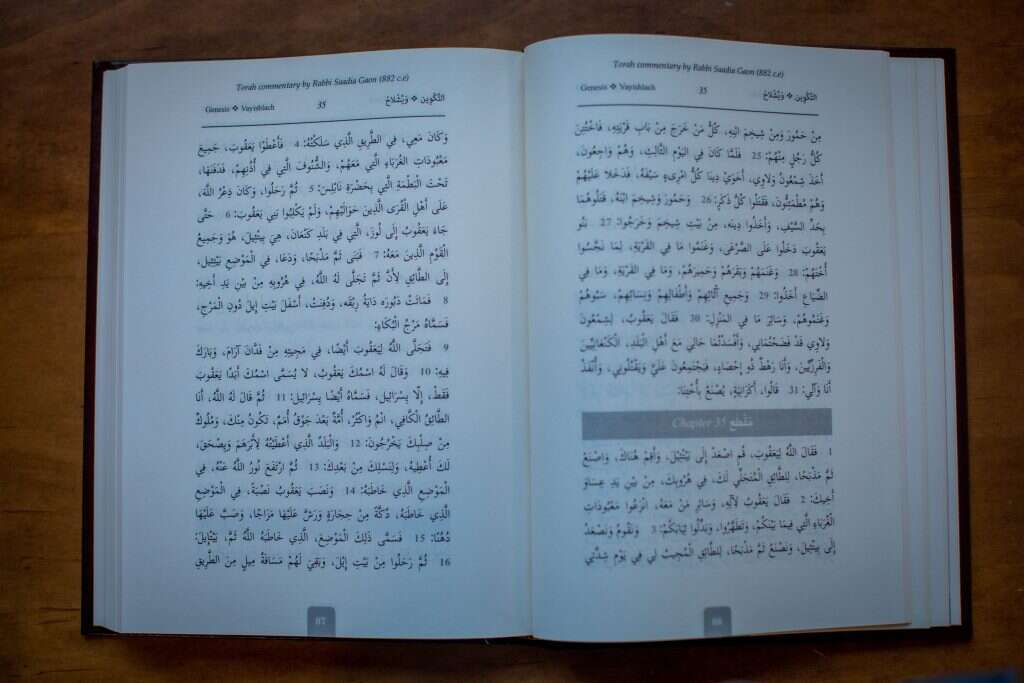 Torah commentary by Rabbi Saadia Gaon (882 c.e)
Genesis ❖ Vayishlach 35 التَّكْوِين ❖ وَيِّشْلَاحْ
مِنْ حَمُورَ وَمِنْ شِيخِمَ ابْنِهِ، كُلُّ مَنْ خَرَجَ مِنْ بَابِ قَرْيَتِهِ، فَاخْتُتِنَ
كُلُّ رَجُلٍ مِنْهُمْ: 25 فَلَمَّا كَانَ فِي الْيَوْمِ الثَّالِثِ، وَهُمْ وَاجِعُونَ،
أَخَذَ شِمْعُونُ وَلَاوِي، أَخَوَيْ دِينَا كُلُّ امْرِىءٍ سَيْفَهُ، فَدَخَلَا عَلَيْهُمْ
وَهُمْ مُطْمَئِنُّونَ، فَقَتَلُوا كُلَّ ذَكَرٍ: 26 وَحَمُورَ وَشِيخِمَ ابْنَهُ، قَتَلُوهُمَا
بِحَدِّ السَّيْفِ، وَأَخَذُوا دِينَه، مِنْ بَيْتِ شِيخِمَ وَخَرَجُوا: 27 بَنُو
يَعْقُوبَ دَخَلُوا عَلَى الصَّرْعَى، وَغَنَمُوا مَا فِي القَرْيَةِ، لِمَا نَجَّسُوا
أُخْتَهُمْ: 28 وَغَنَمَهُمْ وَبَقَرَهُمْ وَحَمِيرَهُمْ، وَمَا فِي القَرْيَةِ، وَمَا فِي
الضِّيَاعِ أَخَذُوا: 29 وَجَمِيعِ أَثَاثِهِمْ وَأَطْفَالِهِمْ وَنِسَائِهِمْ، سَبُوْهُمْ
وَغَنَمُوهُمْ، وَسَائِرَ مَا فِي المَنْزِلِ: 30 فَقَالَ يَعْقُوبُ، لِشِمْعُونَ
وَلَاوِي قَدْ فَضَحْتُمَانِي، وَأَفْسَدْتُمَا حَالِيَ مَعَ أَهْلِ البَلَدِ، الْكَنْعَانِيِّينَ
وَالْفَرِزِّيِّينَ، وَأَنَا رَهْطٌ ذُو إِحْصَاءٍ، فَيَجْتَمِعُونَ عَلَيَّ وَيَقْتُلُونِي، وَأَنْفَدُ
أَنَا وَآلِي: 31 قَالُوا، أَكَزَانِيَةٍ، يُصْنَعُ بِأُخْتِنَا:
Chapter 35 مَقْطَع
1 فَقَالَ اللَّهُ لِيَعْقُوبَ، قُمِ اصْعَدْ إِلَى بَيْتْئِيلَ، وَأَقِمْ هُنَاكَ، وَاصْنَعْ
ثَمَّ مَذْبَحًا، لِلطَّائِقِ الْمُتَجَلِّي لَكَ، فِي هُرُوبِكَ، مِنْ بَيْنِ يَدِ عِسَاوَ
أَخِيكَ: 2 فَقَالَ يَعْقُوبُ لِآلِهِ، وَسَائِرِ مَنْ مَعَهُ، انْزَعُوا مَعْبُودَاتِ
الْغُرَبَاءِ الَّتِي فِيمَا بَيْنَكُمْ، وَتَطَهَّرُوا، وَبَدِّلُوا ثِيَابَكُمْ: 3 وَنَقُومُ وَنَصْعَدُ
إِلَى بَيْتْئِيلَ، وَنَصْنَعُ ثَمَّ مَذْبَحًا، لِلطَّائِقِ الْمُجِيبُ لِي فِي يَوْمِ شِدَّتِي
86
Torah commentary by Rabbi Saadia Gaon (882 c.e)
Genesis ❖ Vayishlach 35 التَّكْوِين ❖ وَيِّشْلَاحْ
وَكَانَ مَعِي، فِي الطَّرِيقِ الَّذِي سَلَكْتُهُ: 4 فَأَعْطَوْا يَعْقُوبَ، جَمِيعَ
مَعْبُودَاتِ الْغُرَبَاءِ الَّتِي مَعَهُمْ، وَالشُّنُوفَ الَّتِي فِي أُذُنِهِمْ، فَدَفَنَهَا،
تَحْتَ الْبَطْمَةِ الَّتِي بِحَضْرَةِ نَابْلِسَ: 5 ثُمَّ رَحَلُوا، وَكَانَ ذِعْرُ اللَّه،
عَلَى أَهْلِ الْقُرَى الَّذِينَ حَوَالَيْهِمْ، وَلَمْ يَكْلُبُوا بَنِي يَعْقُوبَ: 6 حَتَّى
جَاءَ يَعْقُوبُ إِلَى لُوزَ، الَّتِي فِي بَلَدِ كَنْعَانَ، هِيَ بِيتْئِيلَ، هُوَ وَجَمِيعُ
الْقَوْمِ الَّذِينَ مَعَهُ: 7 فَبَنَى ثَمَّ مَذْبَحًا، وَدَعَا، فِي الْمَوْضِعِ بِيتْئِيلَ،
إِلَى الطَّائِقِ لِأَنَّ ثَمَّ تَجَلَّى لَهُ اللَّهُ، فِي هُرُوبِهِ مِنْ بَيْنِ يَدِ أَخِيهِ:
8 فَمَاتَتْ دَبُورَه دَايَةُ رِبْقَه، وَدُفِنَتْ، أَسْفَلَ بَيْتِ إِيلَ دُونِ الْمَرْجِ،
فَسَمَّاهُ مَرْجُ الْبُكَاءِ:
9 فَتَجَلَّى اللَّهُ لِيَعْقُوبَ أَيْضًا، فِي مَجِيئِهِ مِنْ فَدَّانَ آرَامَ، وَبَارَكَ
فِيهِ: 10 وَقَالَ لَهُ اسْمُكَ يَعْقُوبُ، لَا يُسَمَّى اسْمُكَ أَبَدًا يَعْقُوبَ
فَقَطْ، إِلَّا يِسْرَائِيلَ، فَسَمَّاهُ أَيْضًا يِسْرَائِيلَ: 11 ثُمَّ قَالَ لَهُ اللَّهُ، أَنَا
الطَّائِقُ الْكَافِي، انْمُ وَاكْثُرْ، أُمَّةٌ بَعْدَ جَوْقُ أُمَمٍ، تَكُونُ مِنْكَ، وَمُلُوكٌ
مِنْ صِلْبِكَ يَخْرُجُونَ: 12 وَالْبَلَدُ الَّذِي أَعْطَيْتُهُ لِأَبْرَهَمَ وَيِصْحَقَ،
لَكَ أُعْطِيهِ، وَلِنَسْلِكَ مِنْ بَعْدِكَ: 13 ثُمَّ ارْتَفَعَ نُورُ اللَّهُ عَنْهُ، فِي
الْمَوْضِعِ الَّذِي خَاطَبَهُ: 14 وَنَصَبَ يَعْقُوبُ نَصْبَةً، فِي الْمَوْضِعِ
الَّذِي خَاطَبَهُ، دُكَّةً مِنْ حِجَارَةٍ وَرَشَّ عَلَيْهَا مَزَاجًا، وَصَبَّ عَلَيْهَا
دُهْنًا: 15 فَسَمَّى ذَلِكَ الْمَوْضِعَ، الَّذِي خَاطَبَهُ اللَّهُ ثَمَّ، بَيْتْإِيلَ:
16 ثُمَّ رَحَلُوا مِنْ بَيْتِ إِيْلَ، وَبَقِيَ لَهُمْ مَسَافَةُ مِيلٍ مِنَ الطَّرِيقِ
87